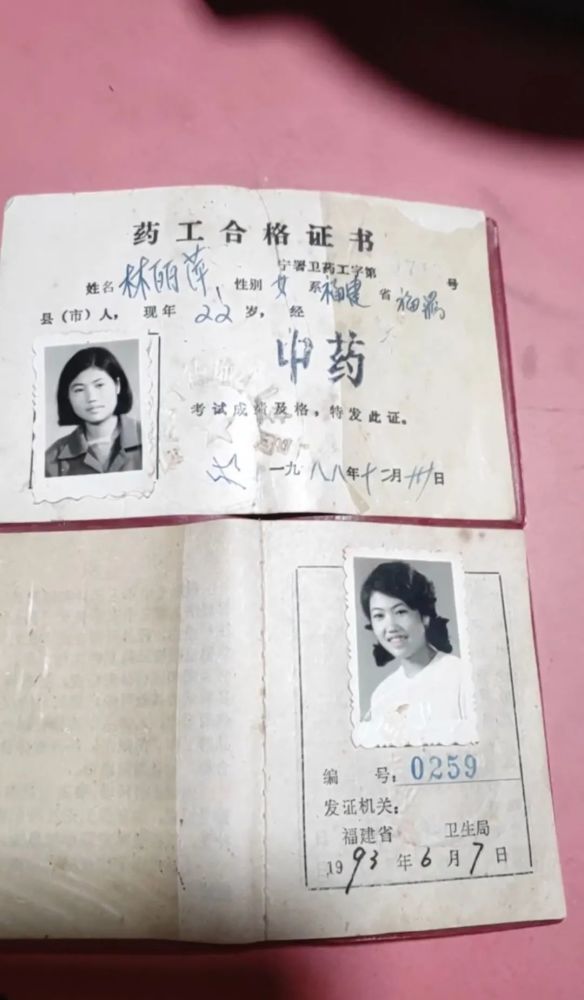 药工合格证书
宁署卫药工字第 号
姓名林丽萍，性别女系福建省福鼎
县（市）人，现年22岁，经
中药
考试成绩及格，特发此证。
一九八八年十二月卅日
编 号：0259
发证机关：
福建省 卫生局
1993年6月7日